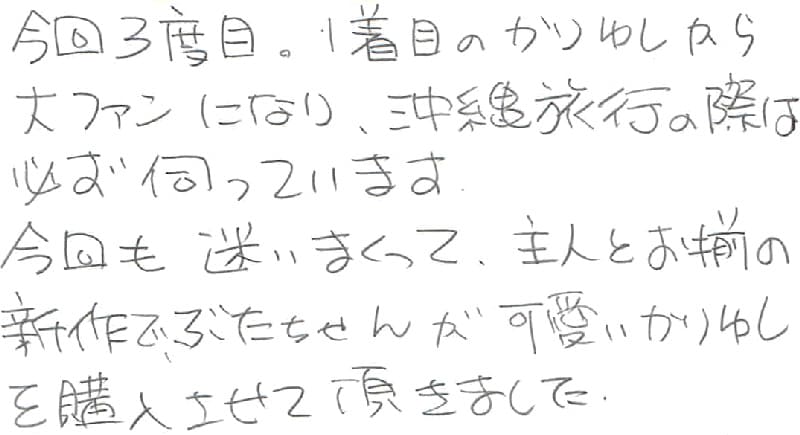 今回3度目。1着目のかりゆしから
大ファンになり、沖縄旅行の際は
必ず伺っています.
今回も迷いまくって、主人とお揃の
新作でぶたちゃんが可愛いかりゆし
を購入させて頂きました.